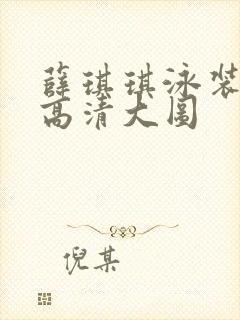 薛琪琪泳装
高清大图
倪某